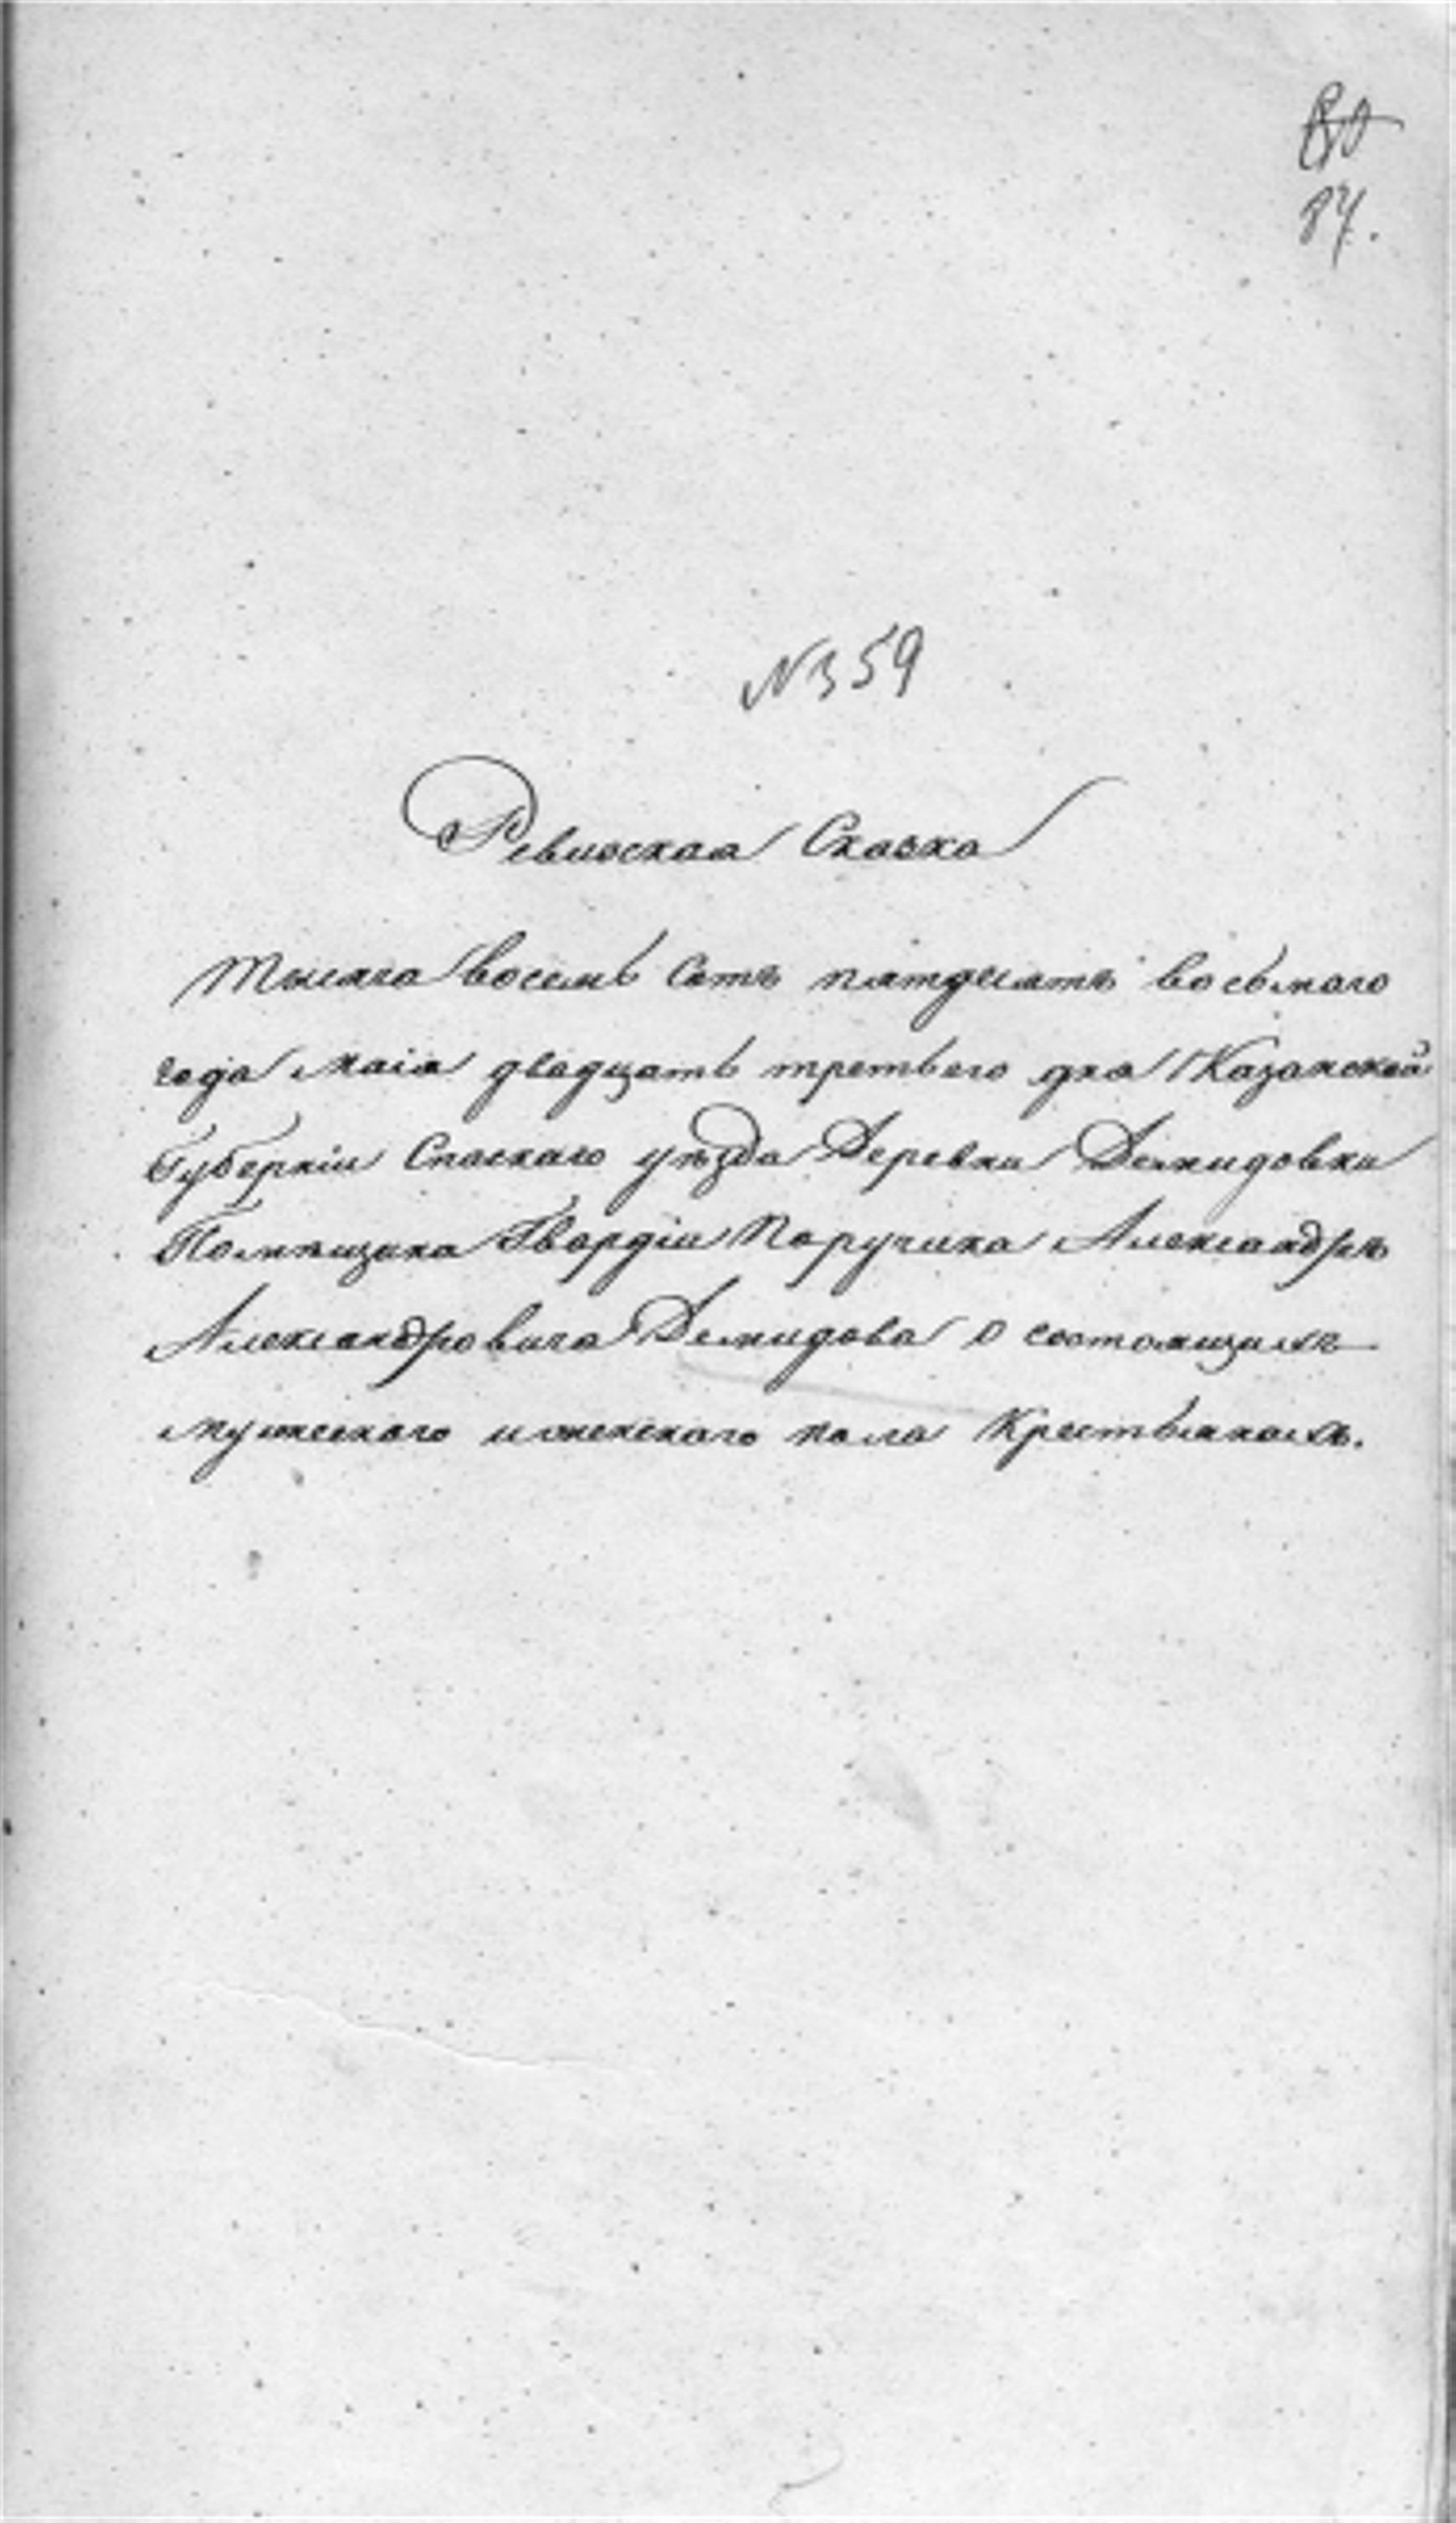 87.
№ 359
Ревизская Сказка
Тысяча восемь сотъ пятдесятъ восьмаго
года маія двадцать третьяго дня Казанской
Губерніи Спаскаго уѣзда Деревни Демидовки
Помѣщика Гвардіи Поручика Александра
Александровича Демидова о состоящихъ
мужескаго и женскаго пола Крестьянахъ.